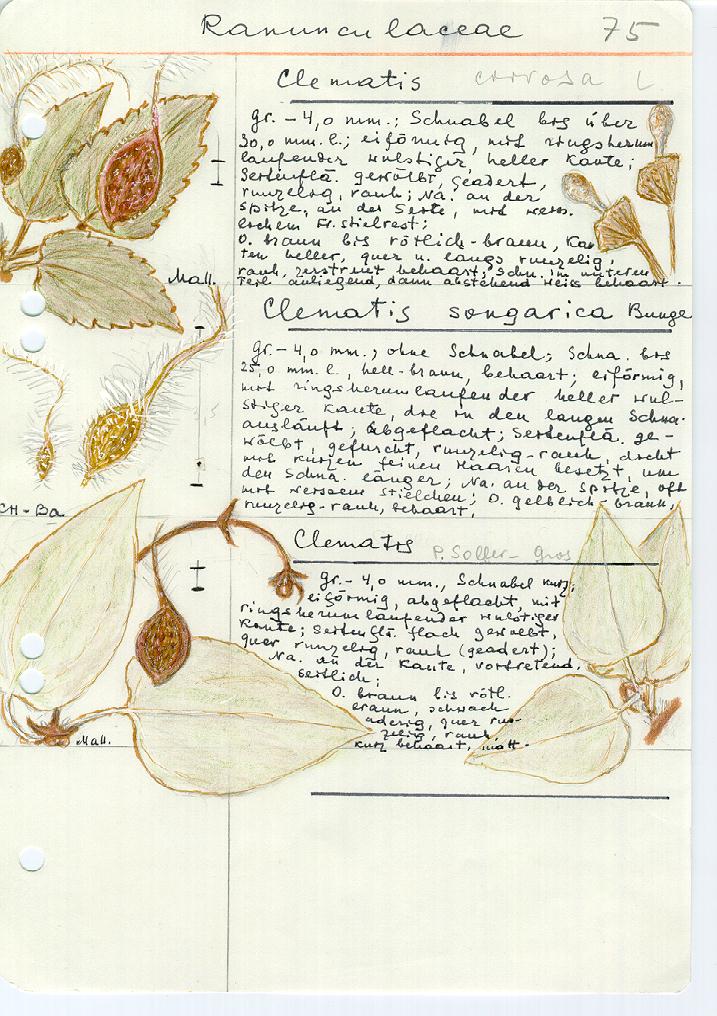 Ranunculaceae 75
Clematis L
gr. - 4,0 mm.; Schnabel bis über
30,0 mm. l.; eiförmig, mit ringsherum
laufender wulstiger, heller Kante;
Seitenflä. gewölbt, geadert,
runzelig, rauh; Na. an der
spitze, an der Seite, mit
lichem Fr. stielrest;
O. braun bis rötlich-braun, Kan
ten heller, quer u. längs runzelig,
rauh, zerstreut behaart; Schn. im unteren
Teil anliegend, dann abstehend weiss behaart.
Mall.
Clematis songarica Bunge
gr. - 4,0 mm.; ohne Schnabel; Schna. bis
25,0 mm. l., hell-braun, behaart; eiförmig,
mit ringsherumlaufender heller wul-
stiger Kante, die in den langen Schna.
ausläuft; abgeflacht; Seitenflä. ge-
wölbt, gefurcht, runzelig-rauh, dicht
mit kurzen feinen Haaren besetzt, um
den Schna. länger; Na. an der Spitze, oft
mit weissem Stielchen; O. gelblich-braun,
runzelig-rauh, behaart.
CH-Ba
Clematis
gr. - 4,0 mm., Schnabel kurz;
eiförmig, abgeflacht, mit
ringsherumlaufender wulstiger
Kante; Seitenflä. flach gewölbt,
quer runzelig, rauh (geadert);
Na. an der Kante, vortretend,
seitlich;
O. braun bis rötl.
braun, schwach
aderig, quer run-
zelig, rauh,
kurz behaart, matt.
Mall.